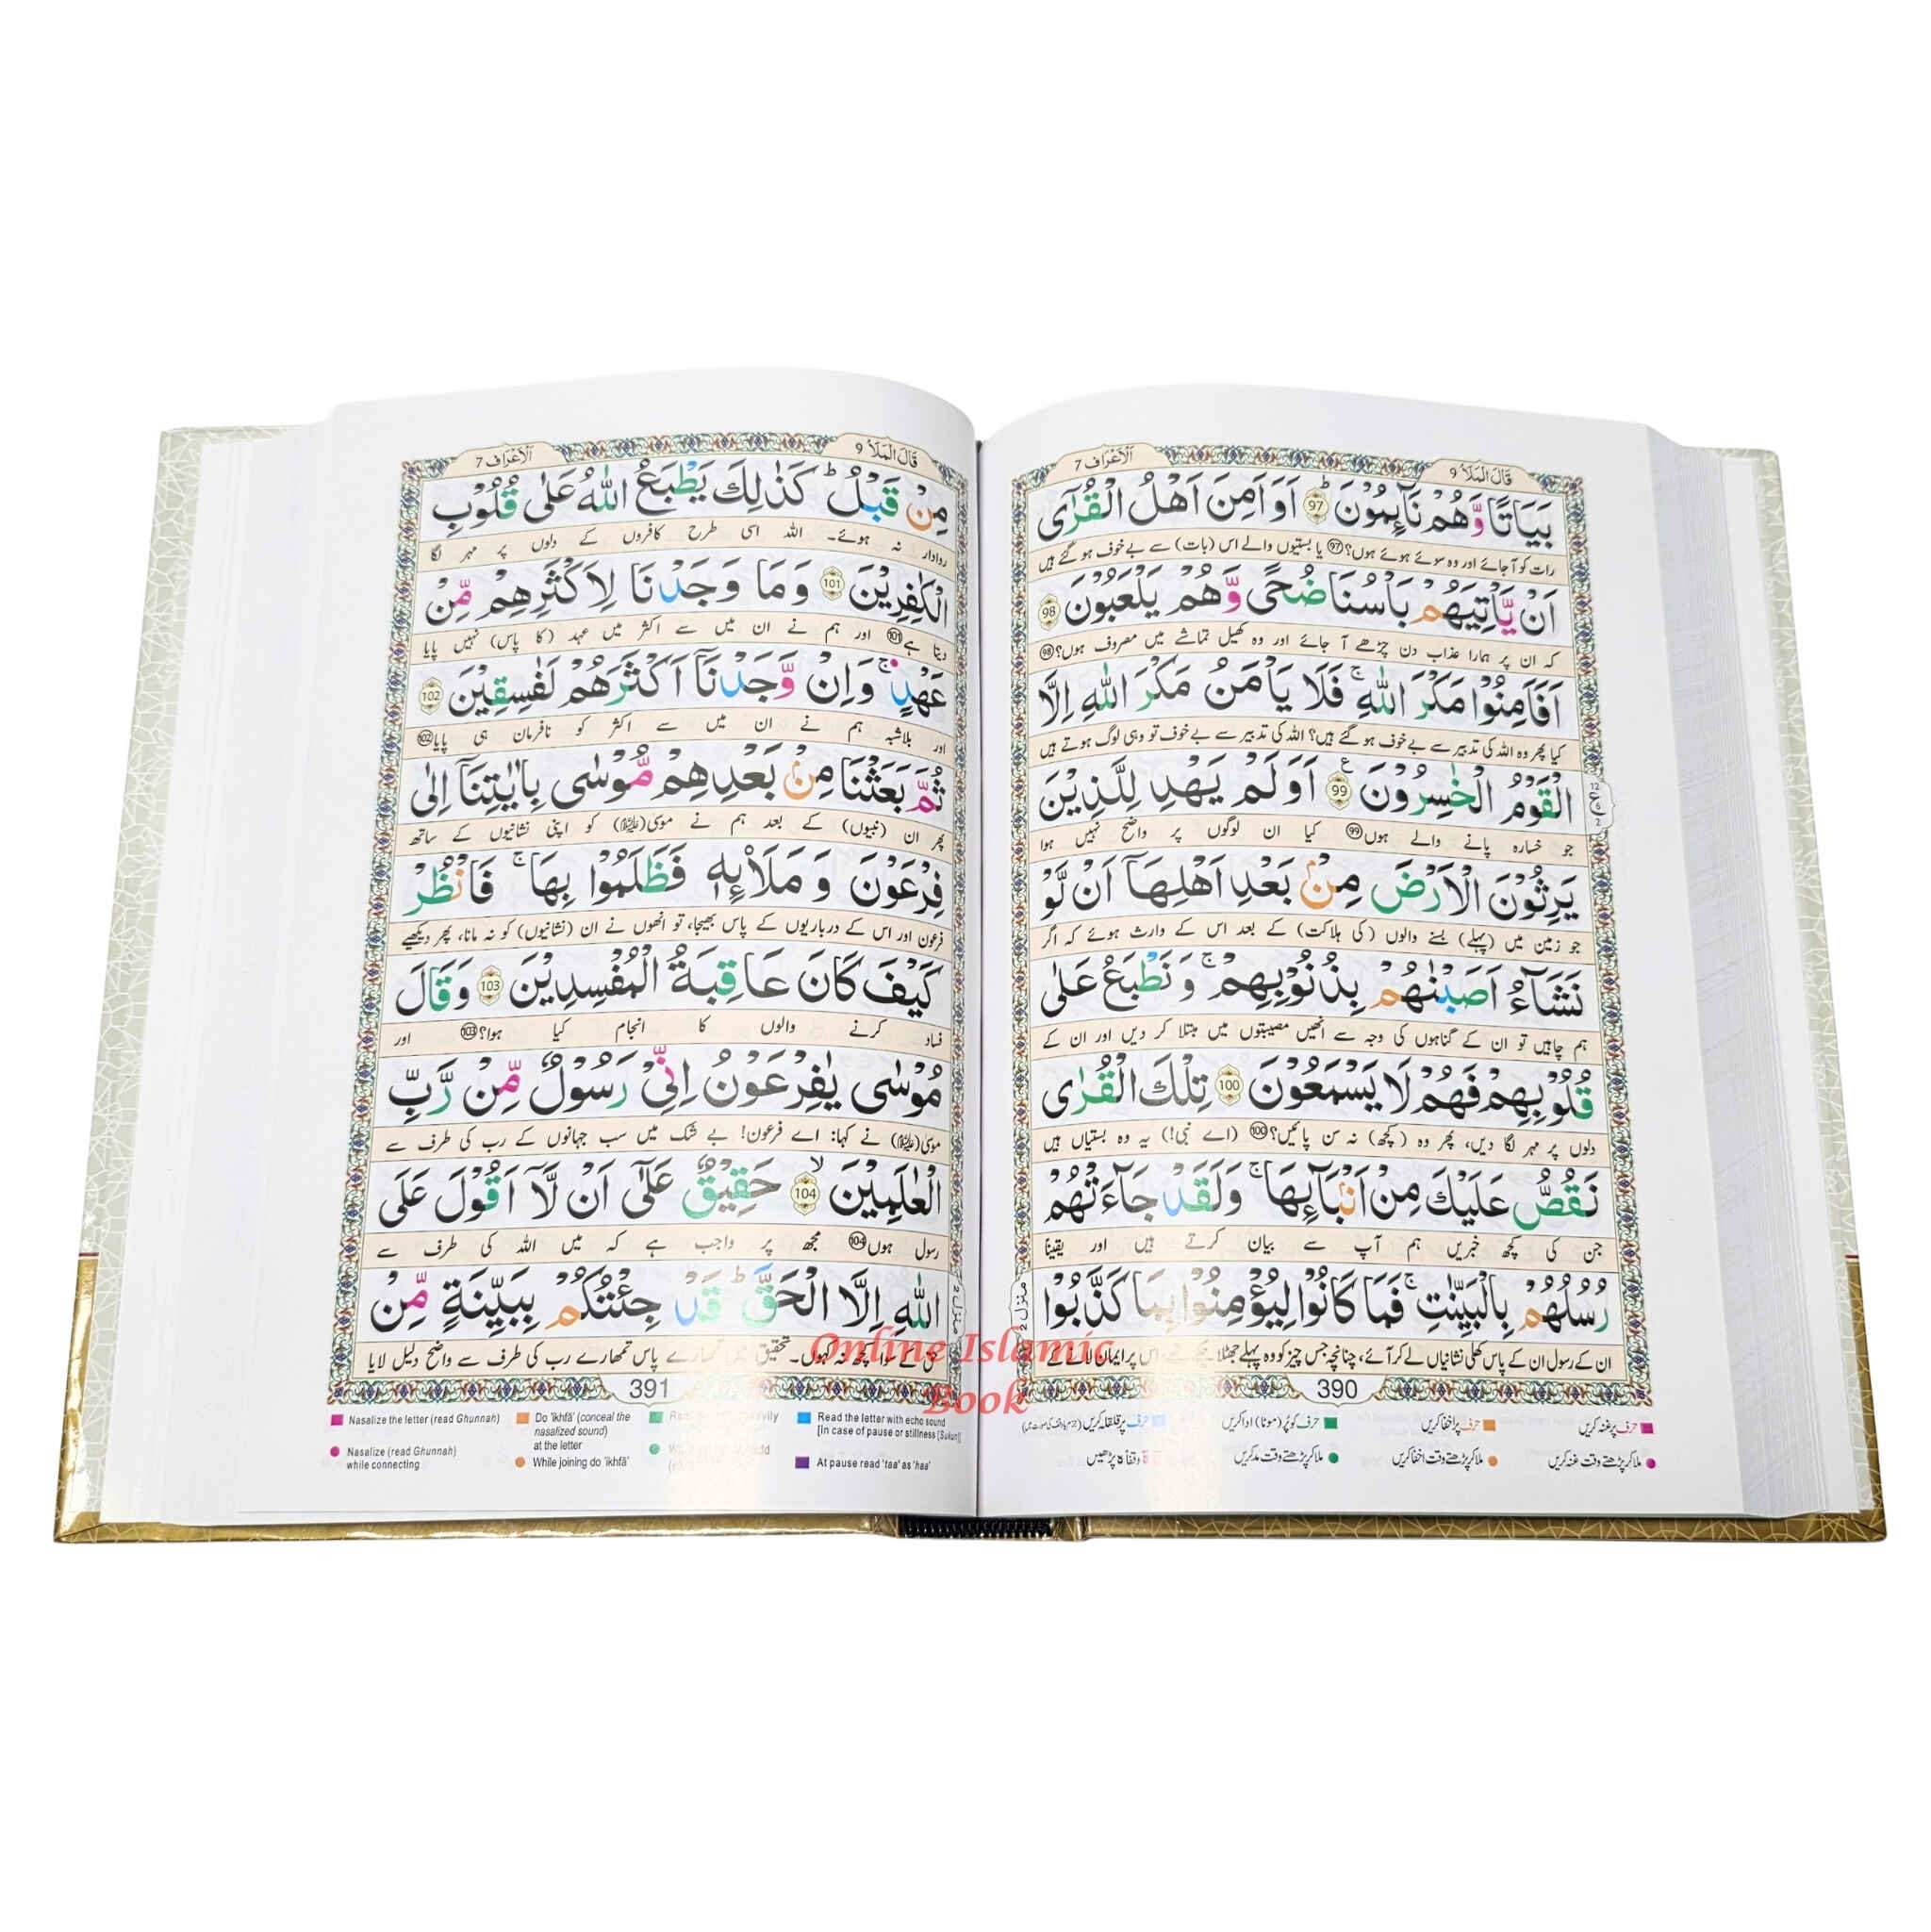 قَالَ الْمَلَاُ 9
اَلْاَعْرَاف 7
بَيَاتًا وَّهُمْ نَآئِمُوْنَ ؕ 97 اَوَ اَمِنَ اَهْلُ الْقُرٰٓى
رات کو آ جائے اور وہ سوئے ہوئے ہوں؟ 97 یا بستیوں والے اس (بات) سے بے خوف ہو گئے ہیں
اَنْ يَّاْتِيَهُمْ بَاْسُنَا ضُحًى وَّهُمْ يَلْعَبُوْنَ 98
کہ ان پر ہمارا عذاب دن چڑھے آ جائے اور وہ کھیل تماشے میں مصروف ہوں؟ 98
اَفَاَمِنُوْا مَكْرَ اللّٰهِ ۚ فَلَا يَاْمَنُ مَكْرَ اللّٰهِ اِلَّا
کیا پھر وہ اللہ کی تدبیر سے بے خوف ہو گئے ہیں؟ اللہ کی تدبیر سے بے خوف تو وہی لوگ ہوتے ہیں
الْقَوْمُ الْخٰسِرُوْنَ 99 اَوَ لَمْ يَهْدِ لِلَّذِيْنَ
جو خسارہ پانے والے ہوں 99 کیا ان لوگوں پر واضح نہیں ہوا
يَرِثُوْنَ الْاَرْضَ مِنْۢ بَعْدِ اَهْلِهَاۤ اَنْ لَّوْ
جو زمین میں (پہلے) بسنے والوں (کی ہلاکت) کے بعد اس کے وارث ہوئے کہ اگر
نَشَآءُ اَصَبْنٰهُمْ بِذُنُوْبِهِمْ ۚ وَ نَطْبَعُ عَلٰى
ہم چاہیں تو ان کے گناہوں کی وجہ سے انھیں مصیبتوں میں مبتلا کر دیں اور ان کے
قُلُوْبِهِمْ فَهُمْ لَا يَسْمَعُوْنَ 100 تِلْكَ الْقُرٰى
دلوں پر مہر لگا دیں، پھر وہ (کچھ) نہ سن پائیں؟ 100 (اے نبی!) یہ وہ بستیاں ہیں
نَقُصُّ عَلَيْكَ مِنْ اَنْۢبَآئِهَا ۚ وَلَقَدْ جَآءَتْهُمْ
جن کی کچھ خبریں ہم آپ سے بیان کرتے ہیں اور یقیناً
رُسُلُهُمْ بِالْبَيِّنٰتِ ۚ فَمَا كَانُوْا لِيُؤْمِنُوْا بِمَا كَذَّبُوْا
ان کے رسول ان کے پاس کھلی نشانیاں لے کر آئے، چنانچہ جس چیز کو وہ پہلے جھٹلا اس پر ایمان لانے کے
منزل 2
390
حرف پر غنہ کریں
حرف پر اخفا کریں
حرف کو پُر (موٹا) ادا کریں
حرف پر قلقلہ کریں
ملا کر پڑھتے وقت غنہ کریں
ملا کر پڑھتے وقت اخفا کریں
ملا کر پڑھتے وقت مد کریں
وقفاً ہ پڑھیں
قَالَ الْمَلَاُ 9
اَلْاَعْرَاف 7
مِنْ قَبْلُ ؕ كَذٰلِكَ يَطْبَعُ اللّٰهُ عَلٰى قُلُوْبِ
روادار نہ ہوئے۔ اللہ اسی طرح کافروں کے دلوں پر مہر لگا
الْكٰفِرِيْنَ 101 وَ مَا وَجَدْنَا لِاَكْثَرِهِمْ مِّنْ
دیتا ہے 101 اور ہم نے ان میں سے اکثر میں عہد (کا پاس) نہیں پایا
عَهْدٍ ۚ وَاِنْ وَّجَدْنَاۤ اَكْثَرَهُمْ لَفٰسِقِيْنَ 102
اور بلاشبہ ہم نے ان میں سے اکثر کو نافرمان ہی پایا 102
ثُمَّ بَعَثْنَا مِنْۢ بَعْدِهِمْ مُّوْسٰى بِاٰيٰتِنَاۤ اِلٰى
پھر ان (نبیوں) کے بعد ہم نے موسیٰ (علیہ السلام) کو اپنی نشانیوں کے ساتھ
فِرْعَوْنَ وَ مَلَا۟ئِهٖ فَظَلَمُوْا بِهَا ۚ فَانْظُرْ
فرعون اور اس کے درباریوں کے پاس بھیجا، تو انھوں نے ان (نشانیوں) کو نہ مانا، پھر دیکھیے
كَيْفَ كَانَ عَاقِبَةُ الْمُفْسِدِيْنَ 103 وَ قَالَ
فساد کرنے والوں کا انجام کیا ہوا؟ 103 اور
مُوْسٰى يٰفِرْعَوْنُ اِنِّىْ رَسُوْلٌ مِّنْ رَّبِّ
موسیٰ (علیہ السلام) نے کہا: اے فرعون! بے شک میں سب جہانوں کے رب کی طرف سے
الْعٰلَمِيْنَ ۙ 104 حَقِيْقٌ عَلٰۤى اَنْ لَّاۤ اَقُوْلَ عَلَى
رسول ہوں 104 مجھ پر واجب ہے کہ میں اللہ کی طرف سے
اللّٰهِ اِلَّا الْحَقَّ ؕ قَدْ جِئْتُكُمْ بِبَيِّنَةٍ مِّنْ
حق کے سوا کچھ نہ کہوں۔ تحقیق میں تمھارے پاس تمھارے رب کی طرف سے واضح دلیل لایا
منزل 2
391
Nasalize the letter (read Ghunnah)
Do 'ikhfā' (conceal the nasalized sound) at the letter
Read the letter with echo sound
[In case of pause or stillness (Sukun)]
Nasalize (read Ghunnah) while connecting
While joining do 'ikhfā'
At pause read 'taa' as 'haa'
Online Islamic
Book